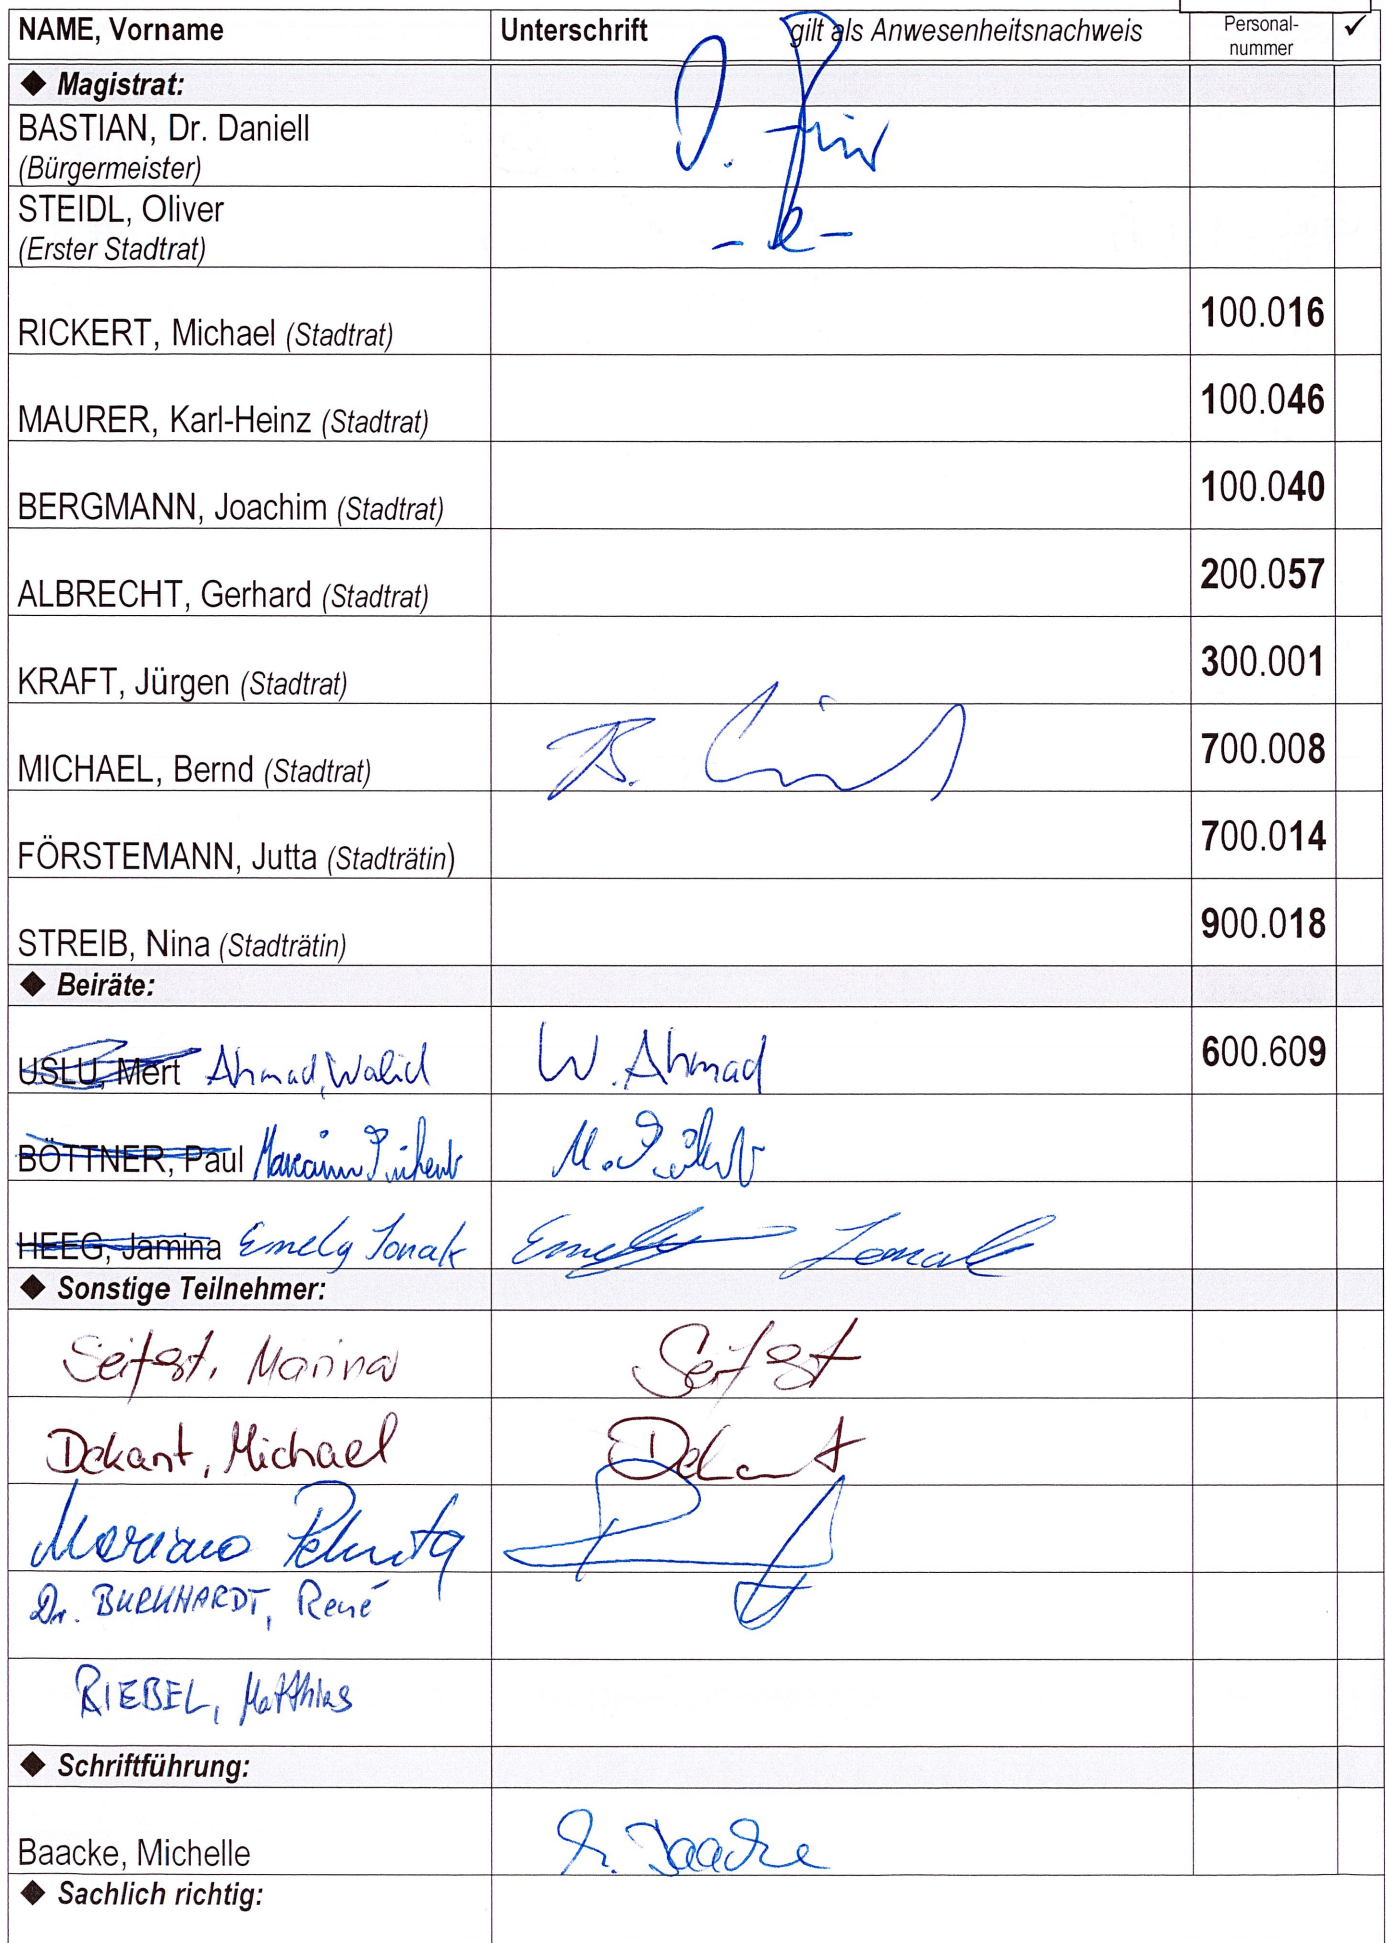 NAME, Vorname Unterschrift gilt als Anwesenheitsnachweis Personal-nummer ✓
◆ Magistrat:
BASTIAN, Dr. Daniell
(Bürgermeister)
STEIDL, Oliver
(Erster Stadtrat)
RICKERT, Michael (Stadtrat) 100.016
MAURER, Karl-Heinz (Stadtrat) 100.046
BERGMANN, Joachim (Stadtrat) 100.040
ALBRECHT, Gerhard (Stadtrat) 200.057
KRAFT, Jürgen (Stadtrat) 300.001
MICHAEL, Bernd (Stadtrat) B. 700.008
FÖRSTEMANN, Jutta (Stadträtin) 700.014
STREIB, Nina (Stadträtin) 900.018
◆ Beiräte:
USLU, Mert Ahmad, Walid W. Ahmad 600.609
BÖTTNER, Paul M.
HEEG, Jamina Emely Jonak Emely Jonak
◆ Sonstige Teilnehmer:
Seifert, Marina Seifert
Dekant, Michael Dekant
Mariano
Dr. BURKHARDT, René
RIEBEL, Matthias
◆ Schriftführung:
Baacke, Michelle M. Baacke
◆ Sachlich richtig: